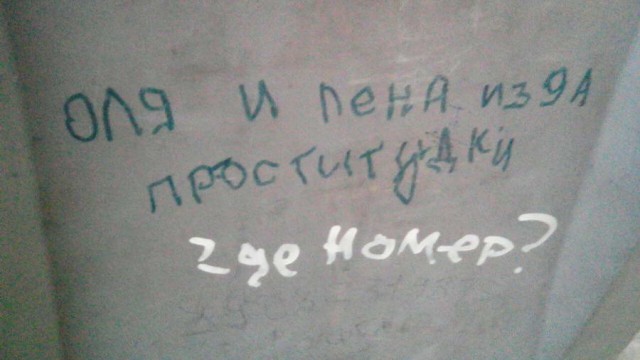 ОЛЯ И ЛЕНА ИЗ 9А
ПРОСТИТУДКИ
где номер?